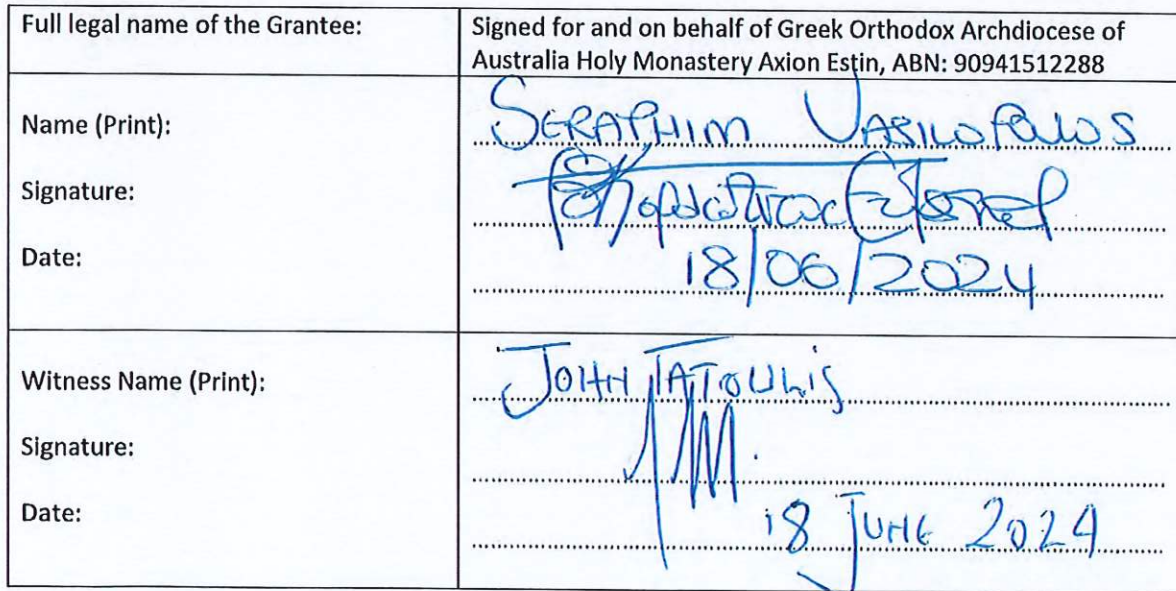 Full legal name of the Grantee:
Signed for and on behalf of Greek Orthodox Archdiocese of
Australia Holy Monastery Axion Estin, ABN: 90941512288
Name (Print): SERAPHIM VASILOPOULOS
Signature:
Date: 18/06/2024
Witness Name (Print): JOHN TATOULIS
Signature:
Date: 18 JUNE 2024